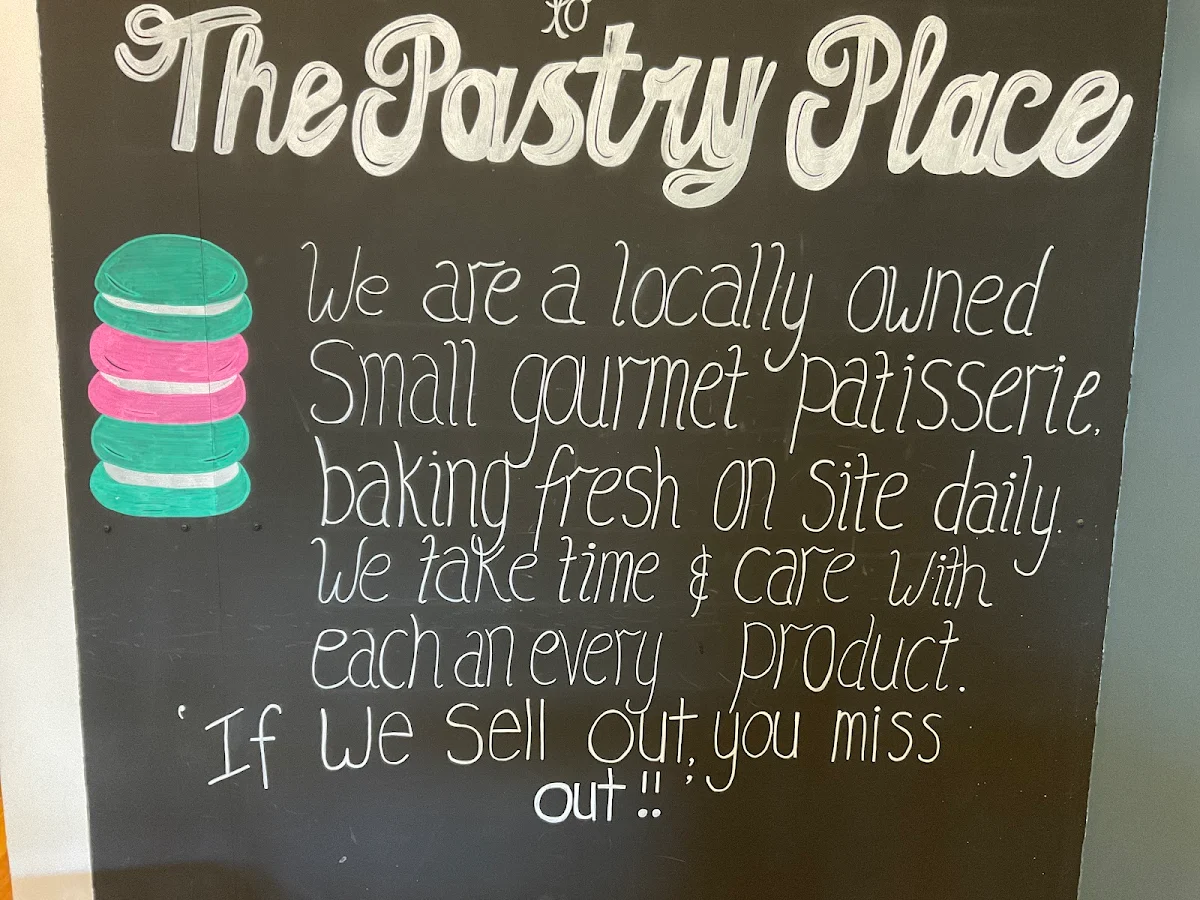 to
The Pastry Place
We are a locally owned
Small gourmet patisserie,
baking fresh on site daily.
We take time & care with
each an every product.
'If we sell out, you miss
out!!'